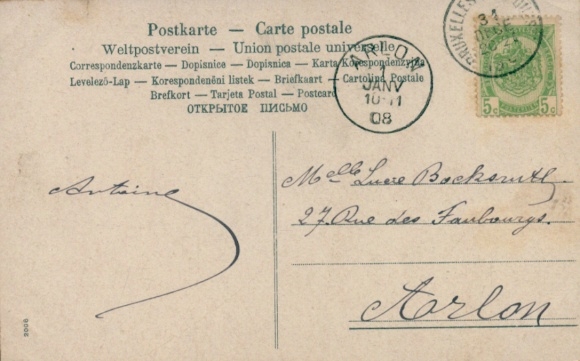 Postkarte — Carte postale
Weltpostverein — Union postale universelle
Correspondenzkarte — Dopisnice — Dopisnica — Karta Korespondenzyina
Levelező-Lap — Korespondenční listek — Briefkaart — Cartolina Postale
Brefkort — Tarjeta Postal — Postcard
ОТКРЫТОЕ ПИСЬМО
ARLON
1
JANV
10-11
08
BRUXELLES
31
5c 5c
Antoine
Melle Lucie
27 Rue des Faubourgs.
Arlon